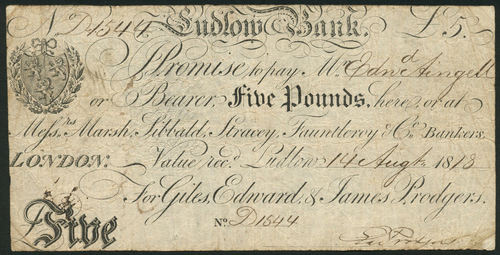 No D1544 Ludlow Bank. £5.
I Promise to pay Mr. Edwd Aingell
or Bearer, Five Pounds, here, or at
Messrs Marsh, Sibbald, Stracey, Fauntleroy & Co. Bankers
LONDON: Value recd. Ludlow 14 Augt 1818
For Giles, Edward, & James Prodgers.
Five No. D1544
Prodgers